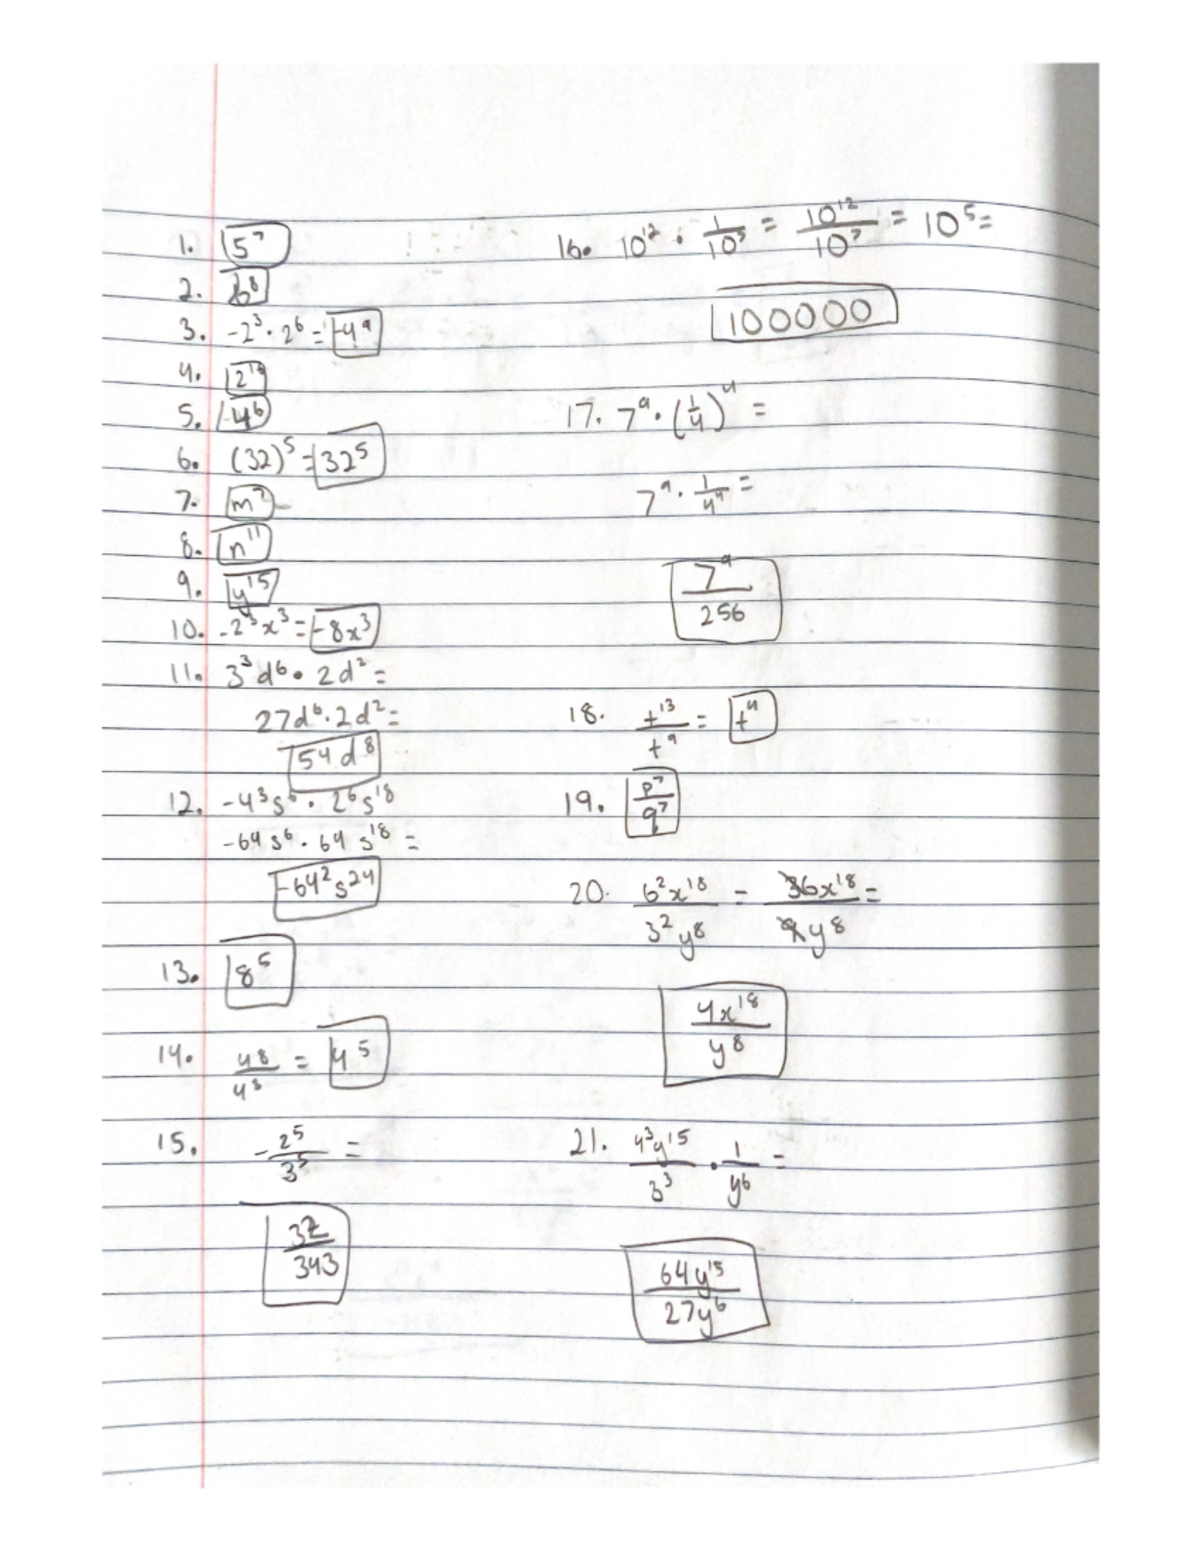 1. 5⁷
2. b⁸
3. -2³ · 2⁶ = -4⁹
4.
5. -4⁶
6. (32)⁵ = 32⁵
7. m⁷
8. n¹¹
9. y¹⁵
10. -2³x³ = -8x³
11. 3³d⁶ · 2d² =
27d⁶ · 2d² =
54d⁸
12. -4³s⁶ · 2⁶s¹⁸
-64s⁶ · 64s¹⁸ =
-64²s²⁴
13. 8⁵
14. 4⁸/4³ = 4⁵
15. -2⁵/3⁵ =
32/343
16. 10¹² · 1/10⁷ = 10¹²/10⁷ = 10⁵ =
100000
17. 7⁹ · (1/4)⁴ =
7⁹ · 1/4⁴ =
7⁹/256
18. t¹³/t⁹ = t⁴
19. p⁷/q⁷
20. 6²x¹⁸/3²y⁸ = 36x¹⁸/9y⁸ =
4x¹⁸/y⁸
21. 4³y¹⁵/3³ · 1/y⁶ =
64y¹⁵/27y⁶